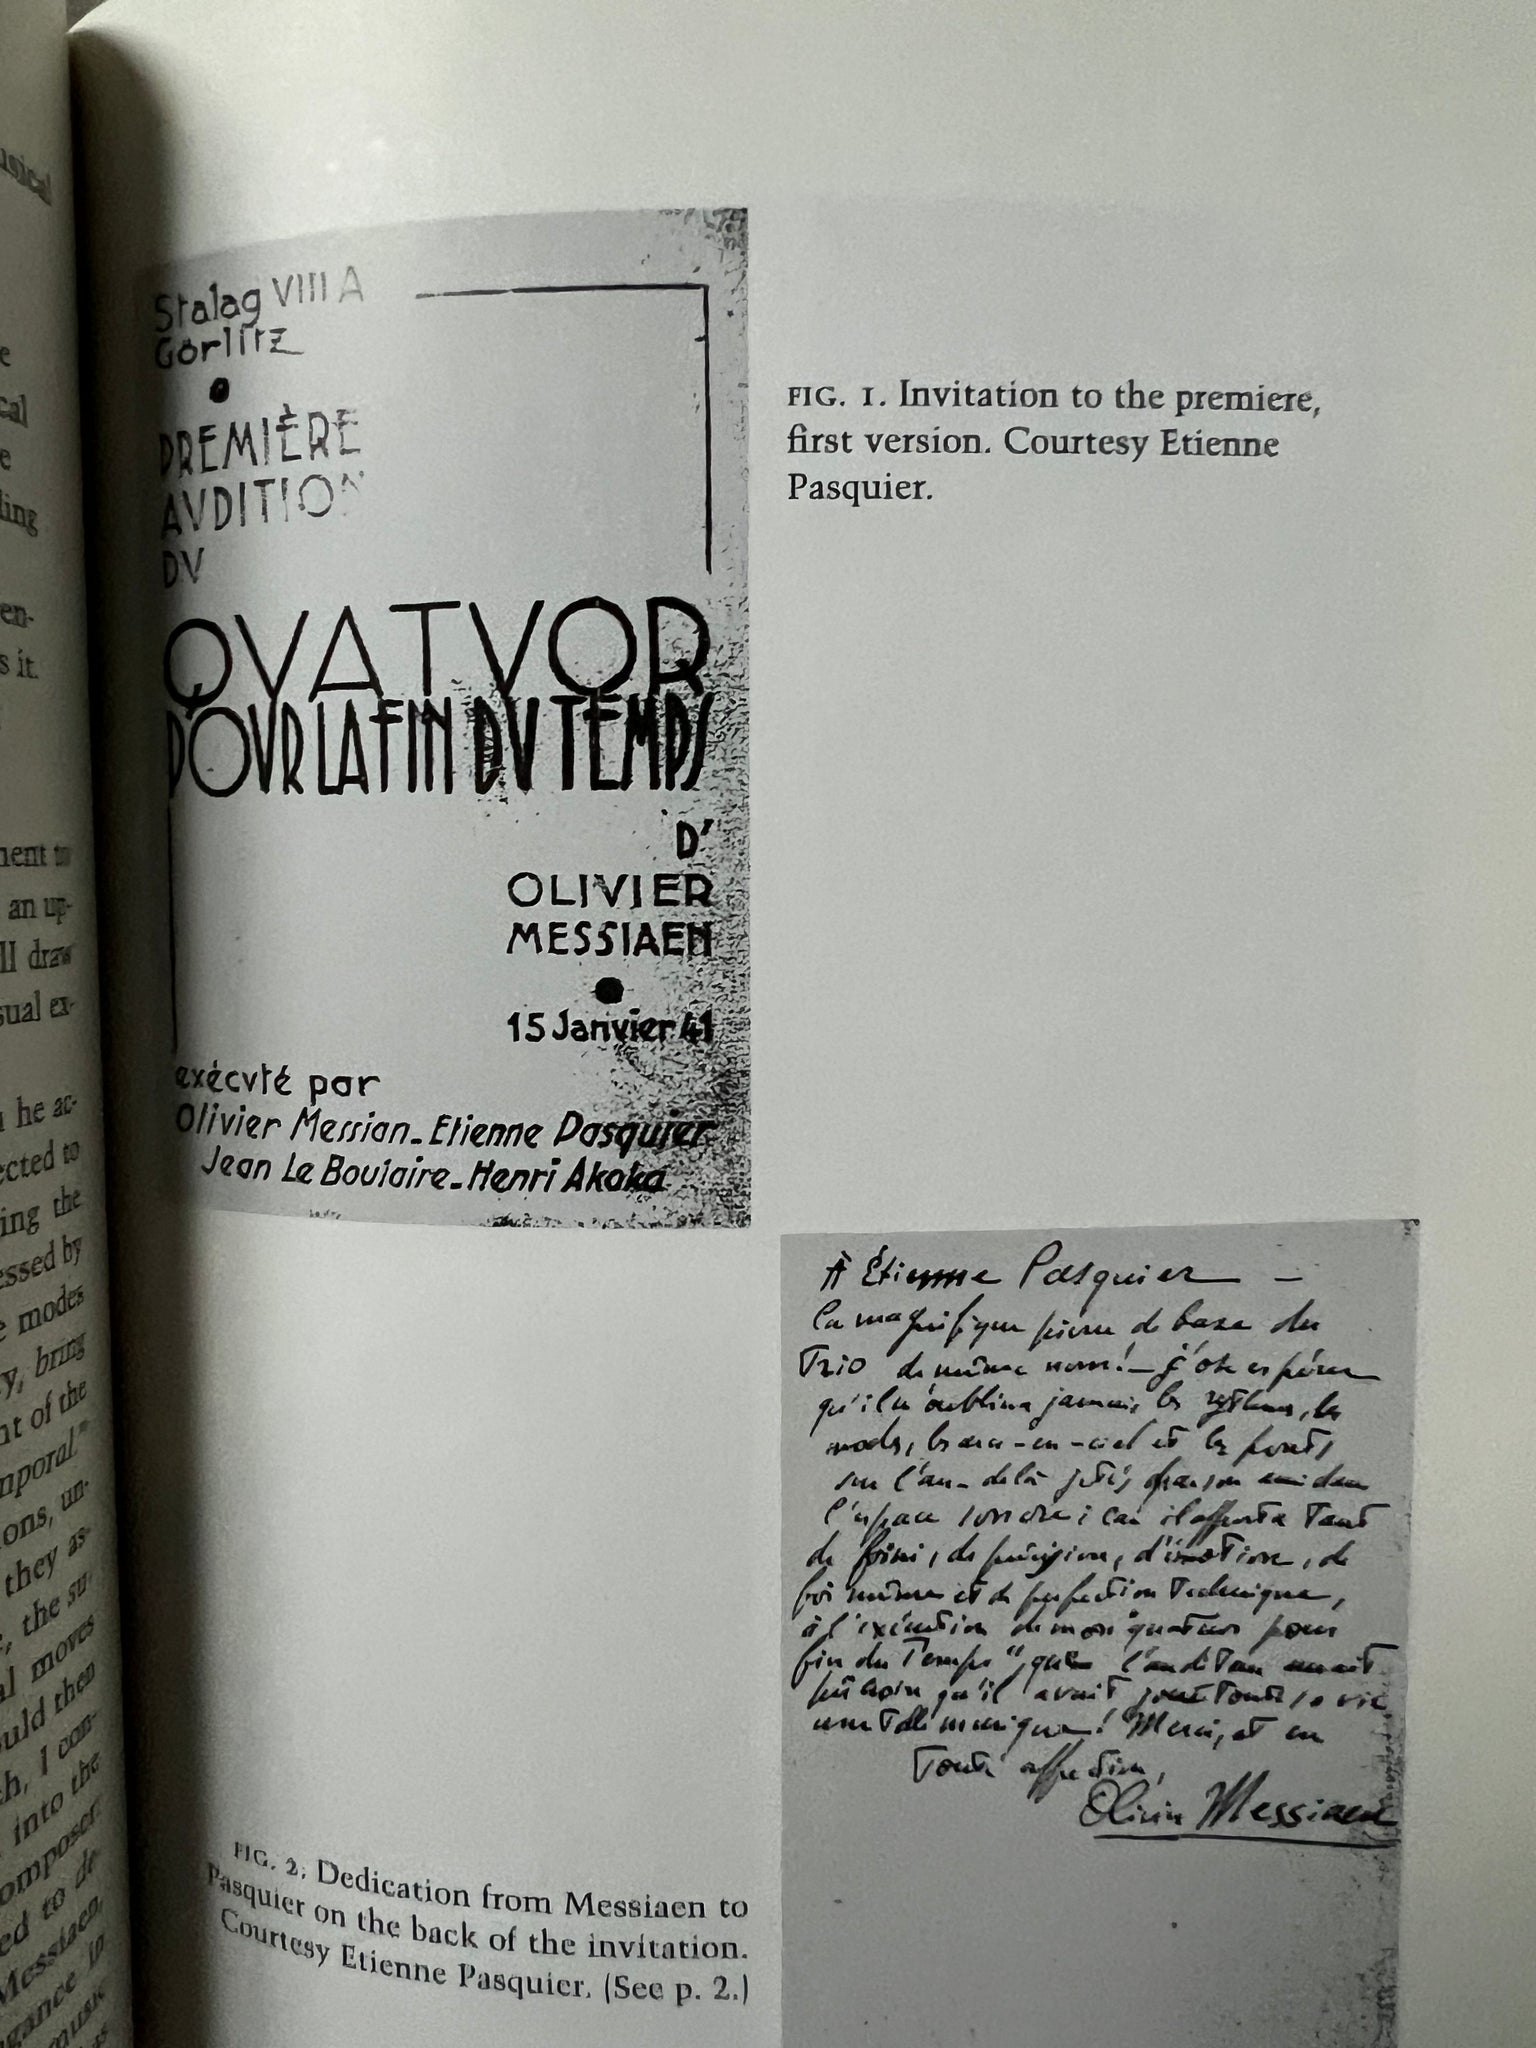 usical
e
cal
e
ling
en-
s it.
ment to
an up-
ll draw
sual ex-
he ac-
ected to
ing the
essed by
e modes
y, bring
nt of the
mporal"
ions, un-
they as-
, the su
al moves
ould then
ch, I con-
into the
omposer
ed to de
Messiaen,
gance in
music
Stalag VIII A
Görlitz
PREMIÈRE
AVDITION
DV
QVATVOR
POVR LA FIN DV TEMPS
D'
OLIVIER
MESSIAEN
15 Janvier 41
exécvté par
Olivier Messian - Etienne Pasquier
Jean Le Boulaire - Henri Akoka
FIG. 1. Invitation to the premiere,
first version. Courtesy Etienne
Pasquier.
À Étienne Pasquier —
la magnifique pierre de base du
Trio de même nom! — j'ose espérer
qu'il n'oubliera jamais les rythmes, les
modes, les arcs-en-ciel et les ponts
sur l'au-delà jetés par son ami dans
l'espace sonore; car il apporta tant
de fini, de précision, d'émotion, de
foi même et de perfection technique,
à l'exécution de mon "quatuor pour
fin du Temps", que l'auditeur aurait
pu croire qu'il avait joué toute sa vie
une telle musique! Merci, et en
toute affection,
Olivier Messiaen
FIG. 2. Dedication from Messiaen to
Pasquier on the back of the invitation.
Courtesy Etienne Pasquier. (See p. 2.)